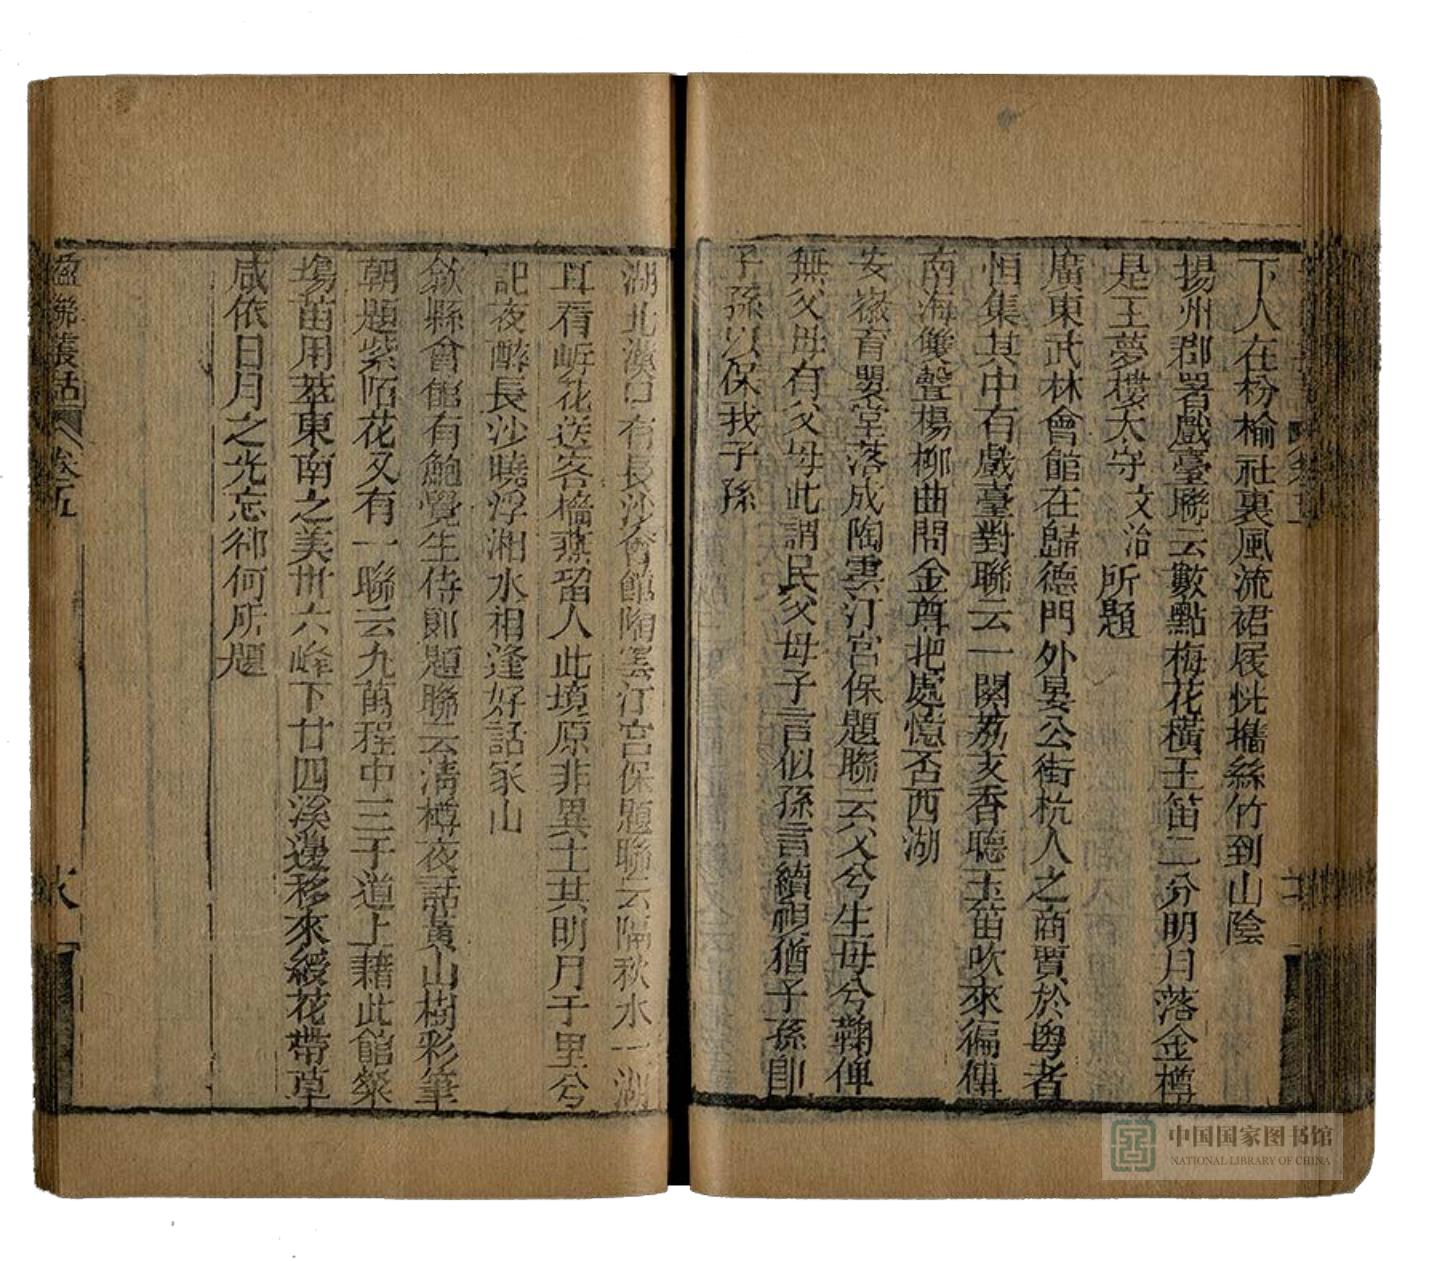 下人在枌榆社裏風流裙屐恍擕絲竹到山陰
揚州郡署戲臺聯云數點梅花橫玉笛二分明月落金樽
是王夢樓太守文治所題
廣東武林會館在歸德門外晏公街杭人之商賈於粵者
恒集其中有戲臺對聯云一闋荔支香聽玉笛吹來徧傳
南海雙聲楊柳曲問金尊把處憶否西湖
安徽育嬰堂落成陶雲汀宮保題聯云父兮生母兮鞠俾
無父母有父母此謂民父母子言似孫言續視猶子孫即
子孫以保我子孫
湖北漢口有長沙會館陶雲汀宮保題聯云隔秋水一湖
耳看岓花送客檣燕留人此境原非異土共明月千里兮
記夜醉長沙曉浮湘水相逢好話家山
歙縣會館有鮑覺生侍郎題聯云清樽夜話黃山樹彩筆
朝題紫陌花又有一聯云九萬程中三千道上藉此館粲
塲苗用萃東南之美卅六峰下廿四溪邊移來綬花帶草
咸依日月之光忘卻何所題
楹聯叢話
卷五
中国国家图书馆
NATIONAL LIBRARY OF CHINA